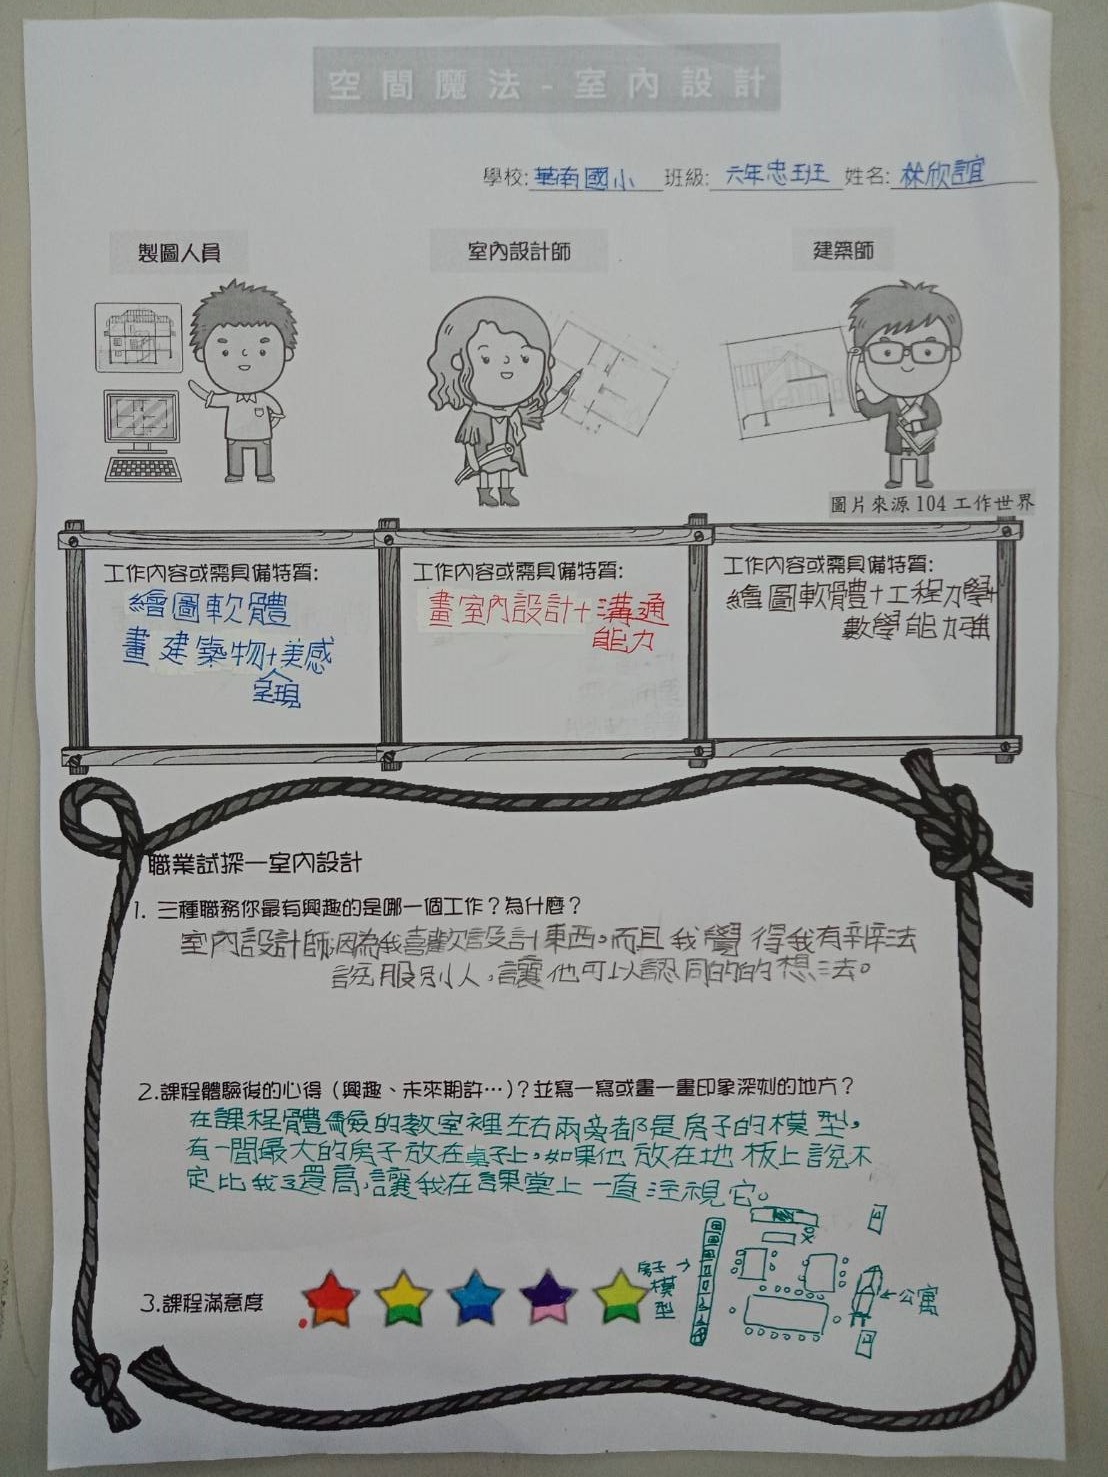 空間魔法-室內設計
學校:華南國小 班級:六年忠班 姓名:林欣誼
製圖人員
室內設計師
建築師
圖片來源 104 工作世界
工作內容或需具備特質:
繪圖軟體
畫建築物+美感
呈現
工作內容或需具備特質:
畫室內設計+溝通
能力
工作內容或需具備特質:
繪圖軟體+工程力學+
數學能力強
職業試探—室內設計
1. 三種職務你最有興趣的是哪一個工作?為什麼?
室內設計師,因為我喜歡設計東西。而且我覺得我有辦法
說服別人,讓他可以認同的的想法。
2.課程體驗後的心得(興趣、未來期許…)?並寫一寫或畫一畫印象深刻的地方?
在課程體驗的教室裡左右兩旁都是房子的模型,
有一間最大的房子放在桌子上,如果他放在地板上說不
定比我還高,讓我在課堂上一直注視它。
房子
模
型
公寓
3.課程滿意度